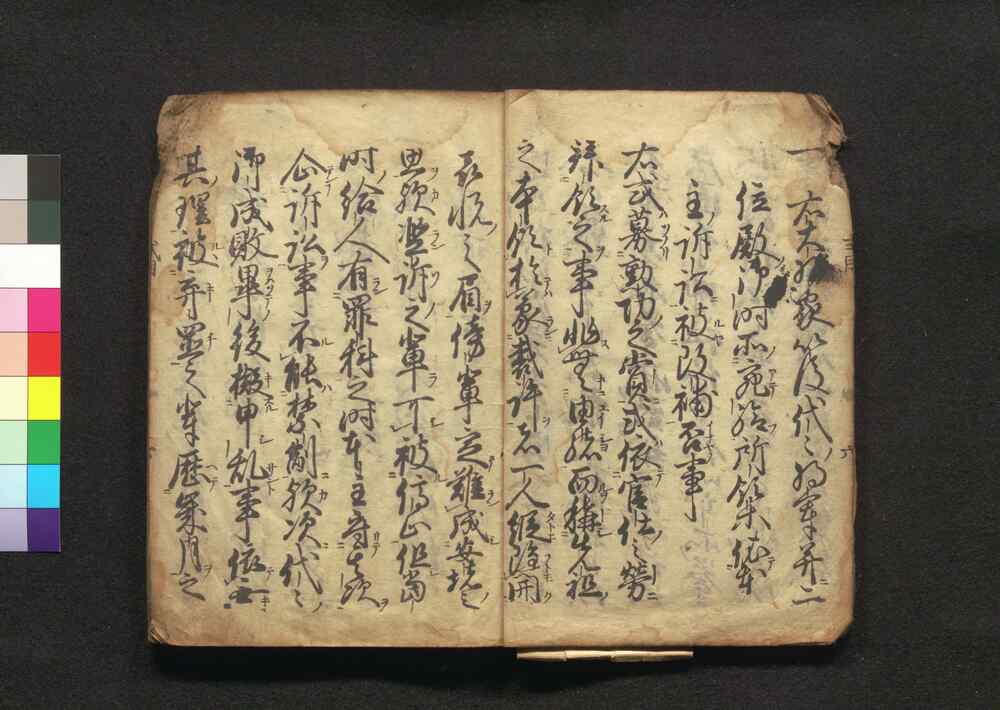 一右大将家以後代々将軍并二
位殿御時所宛給所領等依本
主訴訟被改補否事
右或募勲功之賞或依官仕之労
拝領之事非無由緒而称先祖
之本領於蒙裁許者一人縦雖開
喜悦之眉傍輩定難成安堵之
思歟濫訴之輩可被停止但當
時給人有罪科之時本主守其次
企訴訟事不能禁制歟次代々
御成敗畢後擬申乱事依無
其理被弃置之輩歴歳月之